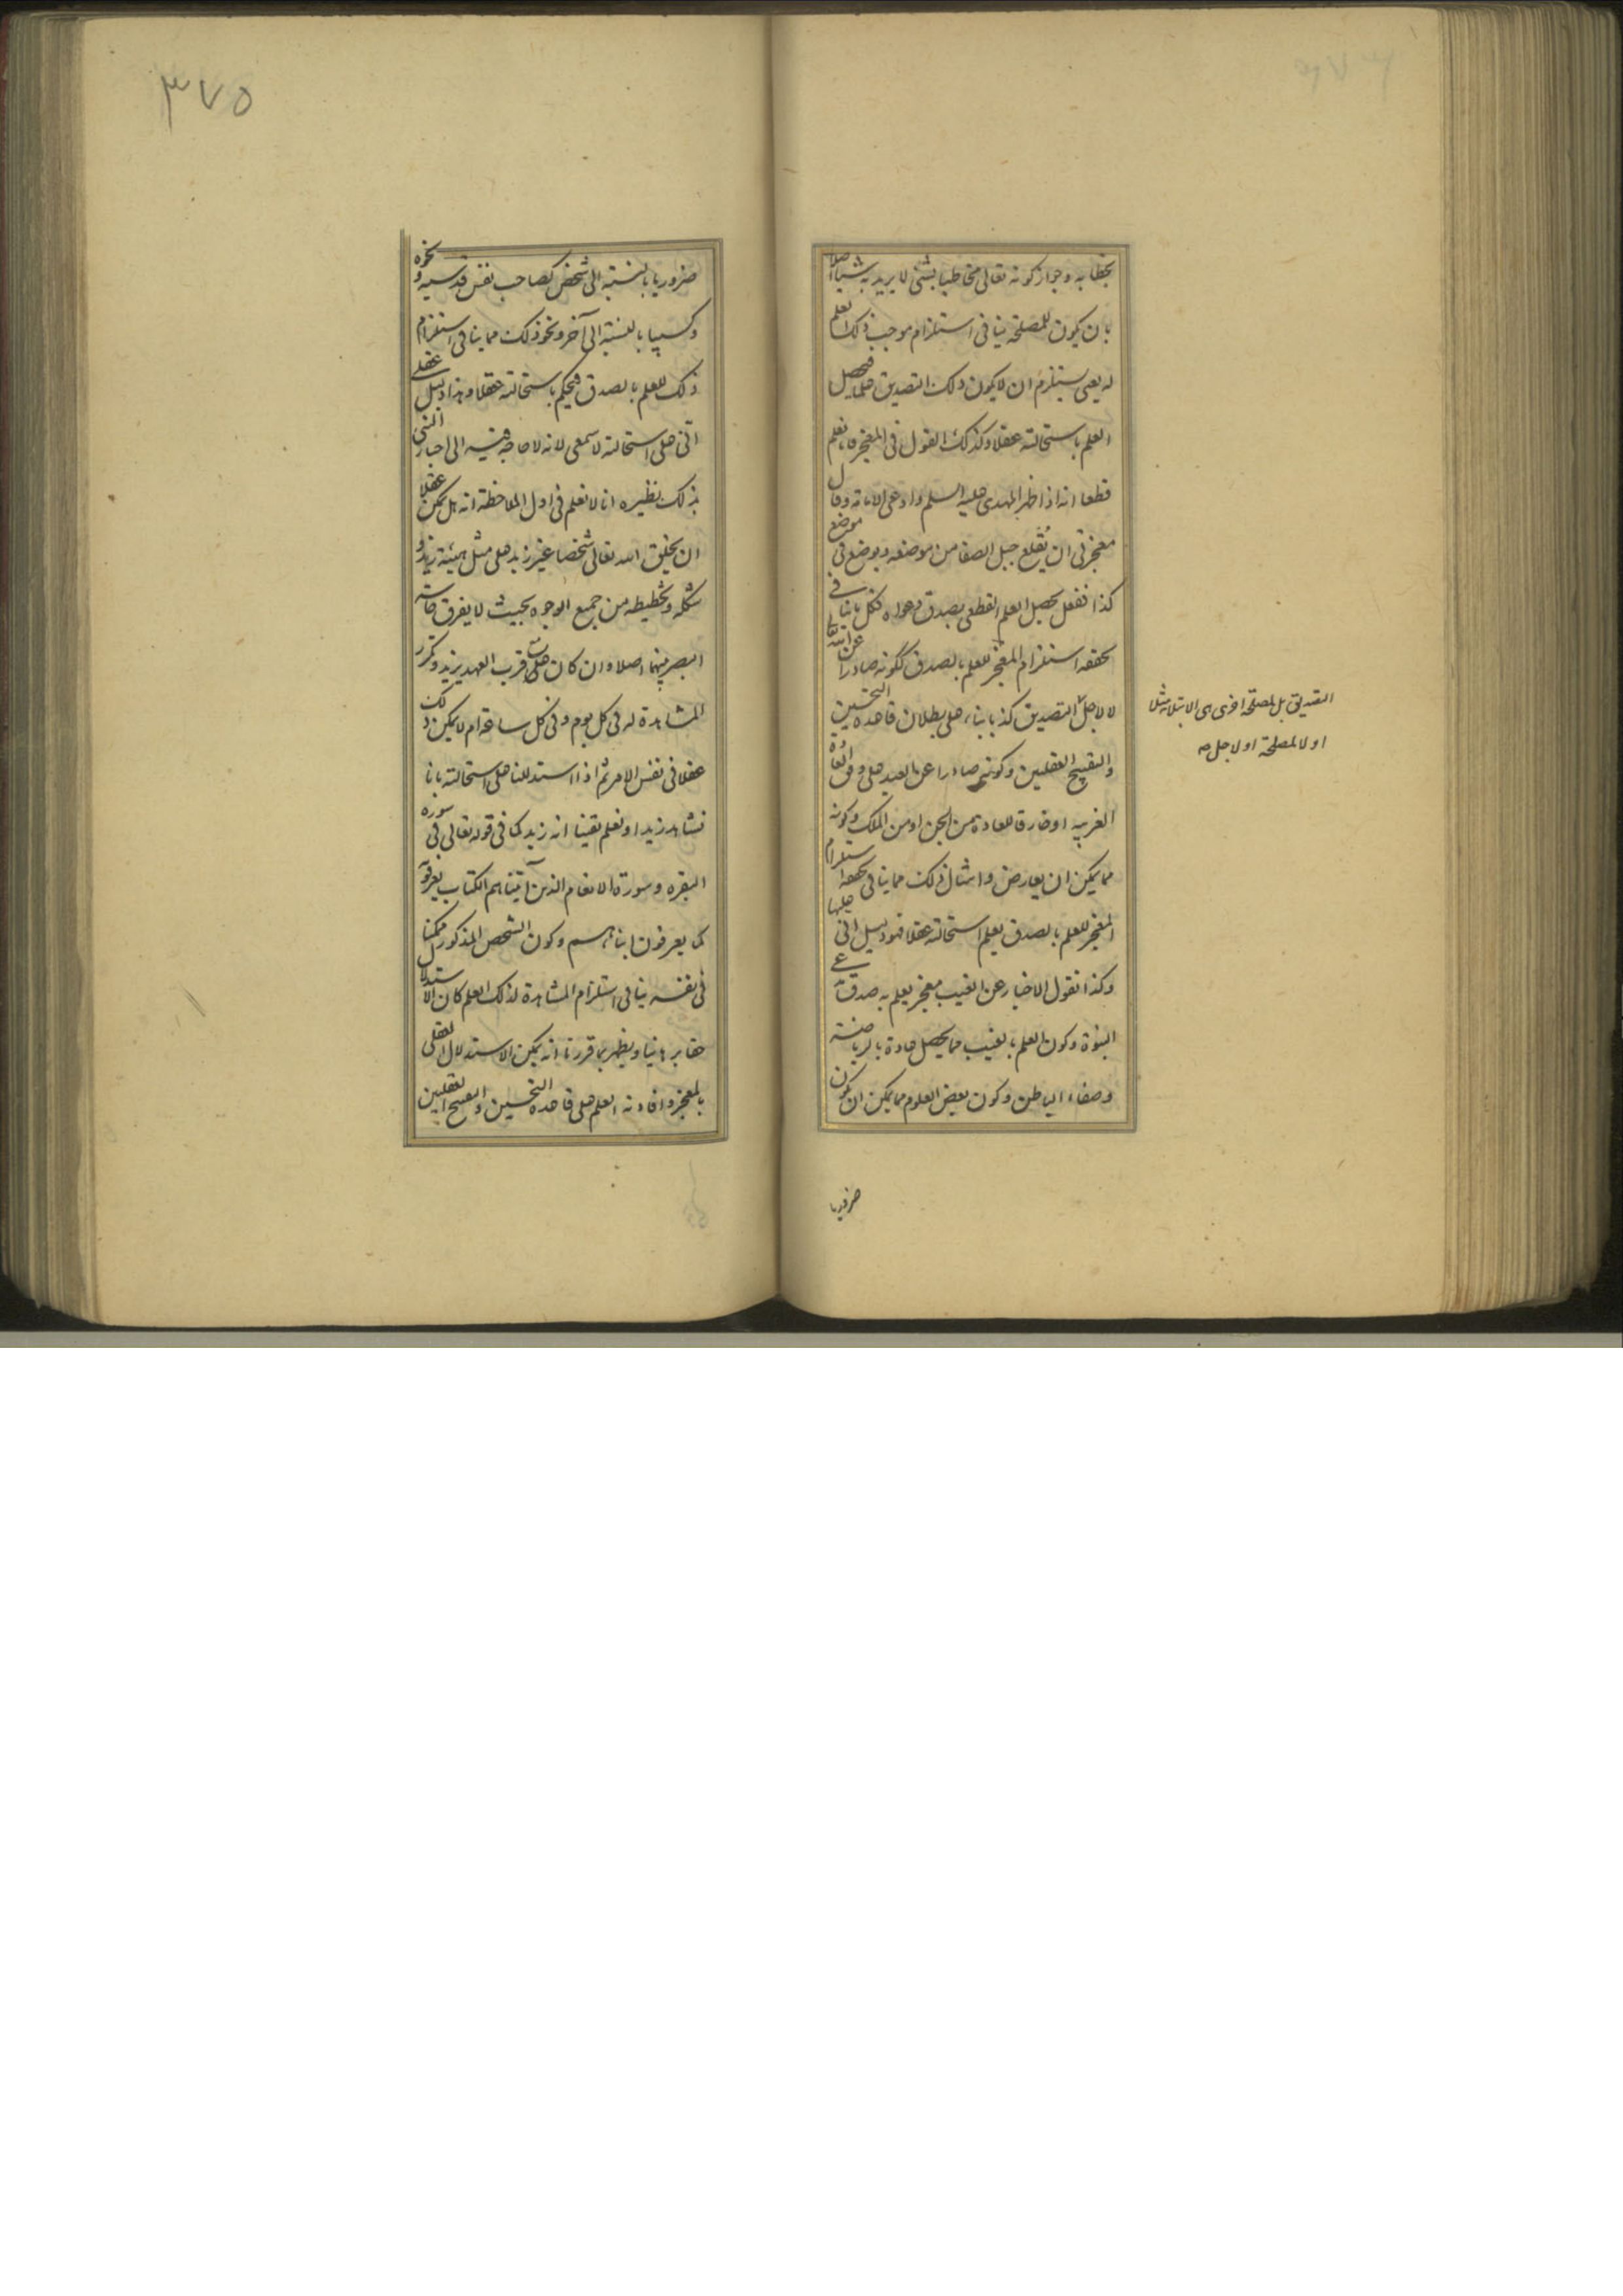 بخطابه وجواز كونه تعالى مخاطبا بشئ لا يريد به شيئا اصلا
بان يكون للمصلحة ينافى استلزام موجب ذلك العلم
له يعنى يستلزم ان لا يكون ذلك التصديق علما فيحصل
العلم باستحالته عقلا وكذلك القول فى المعجز فانا نعلم
قطعا انه اذا ظهر المهدى عليه السلم وادعى الامامة وقال
معجزتى ان يُقلع جبل الصفا من موضعه ويوضع فى موضع
كذا ففعل يحصل العلم القطعى بصدق دعواه فكل ما ينافى
تحققه استلزام المعجز للعلم بالصدق ككونه صادرا عن الله تعالى
لا لاجل التصديق كذبا بناء على بطلان قاعدة التحسين
والتقبيح العقليين وكونه صادرا عن العبد على وفق العادة
الغريبه او خارقا للعادة من الجن او من الملك وكونه
مما يمكن ان يعارض وامثال ذلك مما ينافى تحققه استلزام
المعجز للعلم بالصدق يعلم استحالته عقلا فهو دليل انى عليها
وكذا نقول الاخبار عن الغيب معجز يعلم به صدق مدعى
النبوة وكون العلم بالغيب مما يحصل عادة بالرياضة
وصفاء الباطن وكون بعض العلوم مما يمكن ان يكون
ضروريا
التصديق بل لمصلحة اخرى هى الابتلاء مثلا
او لا لمصلحة او لاجل صح
٣٧٥
ضروريا بالنسبة الى شخص كصاحب نفس قدسيه ونحوه
وكسبيا بالنسبة الى آخر ونحو ذلك مما ينافى استلزام
ذلك للعلم بالصدق فيحكم باستحالته عقلا وهذا دليل عقلى
انّى على استحالته لا سمعى لانه لا حاجة فيه الى اخبار النبى
بذلك نظيره انا لا نعلم فى اول الملاحظة انه هل يمكن عقلا
ان يخلق الله تعالى شخصا غير زيد على مثل هيئة زيد و
شكله وتخطيطه من جميع الوجوه بحيث لا يفرق حاسة
البصر بينهما اصلا وان كان على قرب العهد بزيد وتكرر
المشاهدة له فى كل يوم وفى كل ساعة ام لا يمكن ذلك
عقلا فى نفس الامر ثم اذا استدللنا على استحالته بانا
نشاهد زيدا ونعلم يقينا انه زيد كما فى قوله تعالى فى سورة
البقره وسورة الانعام الذين آتيناهم الكتاب يعرفونه
كما يعرفون ابناءهم وكون الشخص المذكور ممكنا
فى نفسه ينافى استلزام المشاهدة لذلك العلم كان الاستدلال
حقا برهانيا ويظهر بما قررنا انه يمكن الاستدلال العقلى
بالمعجز وافادته العلم على قاعدة التحسين والتقبيح العقليين